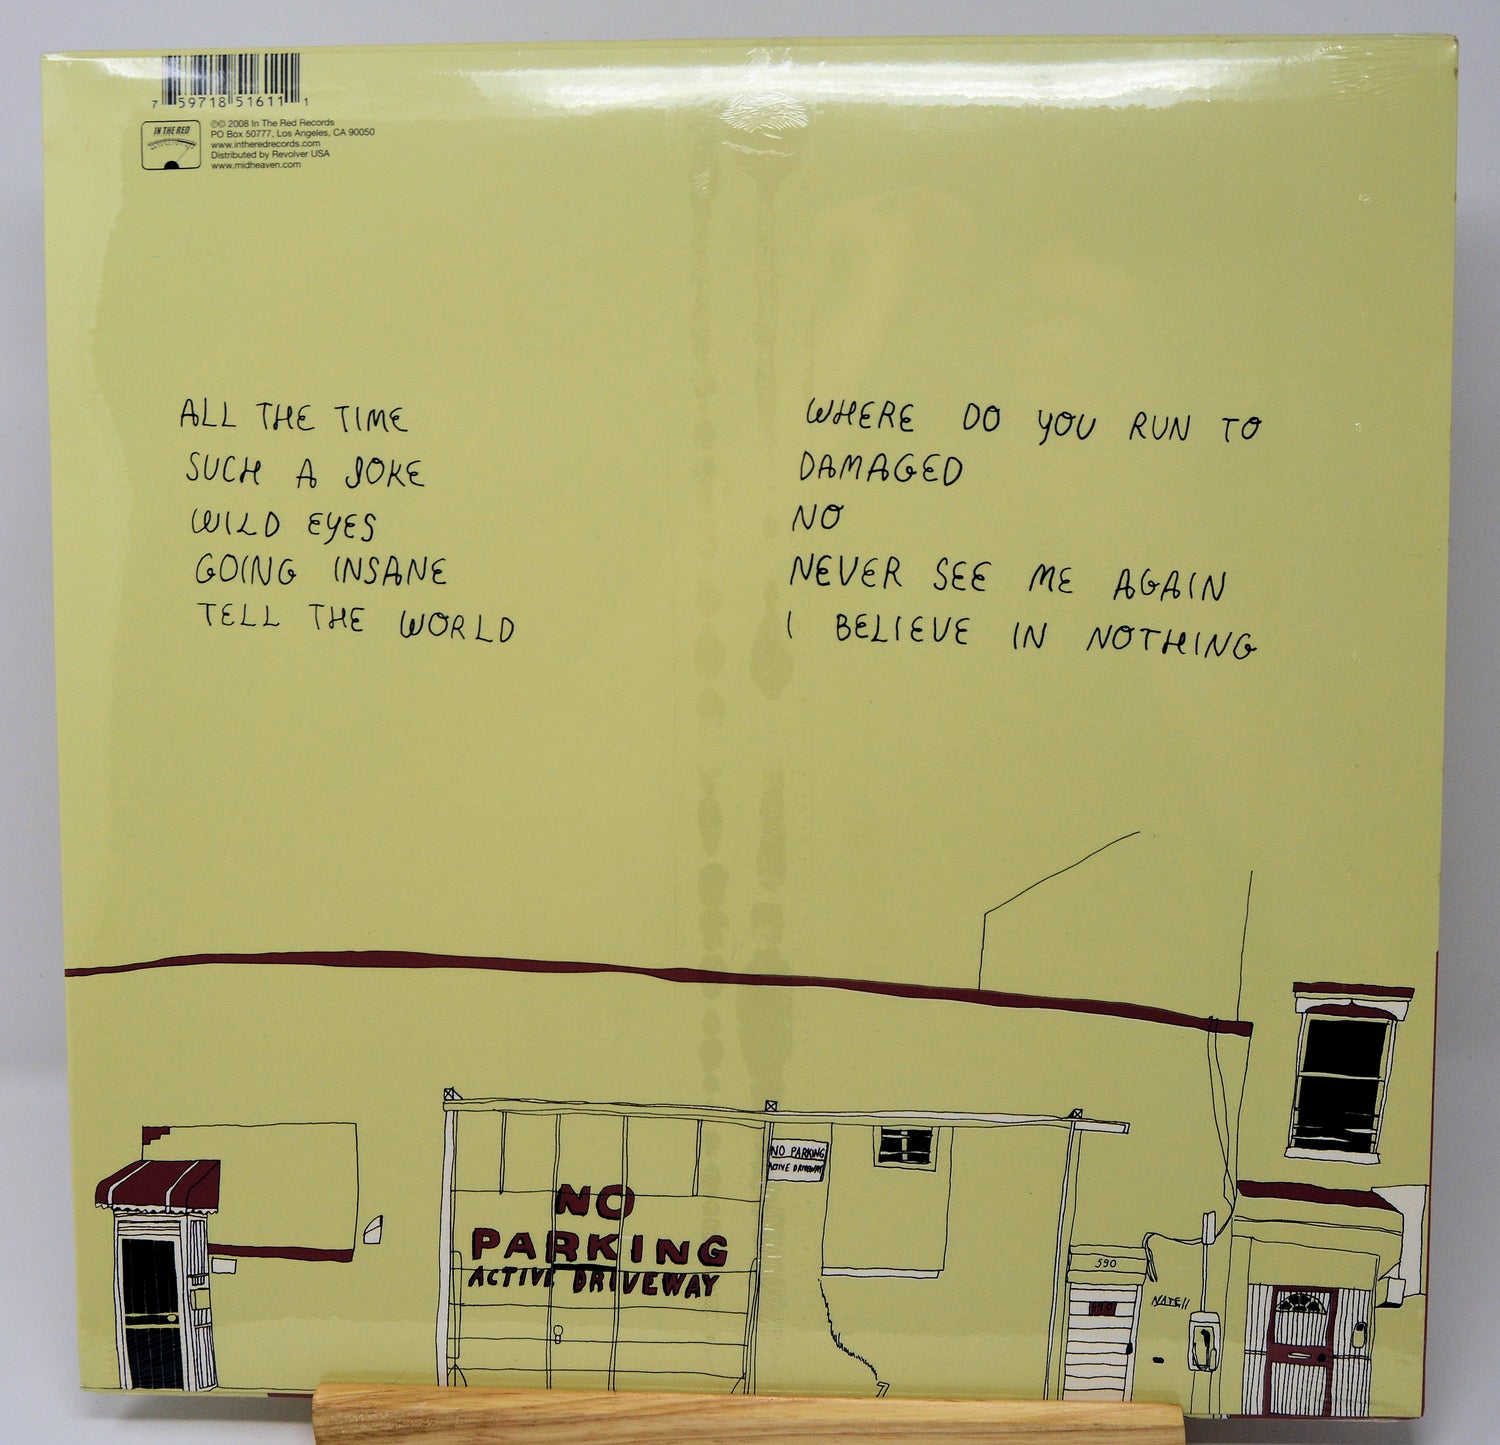 7 59718 51611 1
IN THE RED
℗© 2008 In The Red Records
PO Box 50777, Los Angeles, CA 90050
www.intheredrecords.com
Distributed by Revolver USA
www.midheaven.com
ALL THE TIME
SUCH A JOKE
WILD EYES
GOING INSANE
TELL THE WORLD
WHERE DO YOU RUN TO
DAMAGED
NO
NEVER SEE ME AGAIN
I BELIEVE IN NOTHING
NO
PARKING
ACTIVE DRIVEWAY
NO PARKING
ACTIVE DRIVEWAY
590
590
NATE